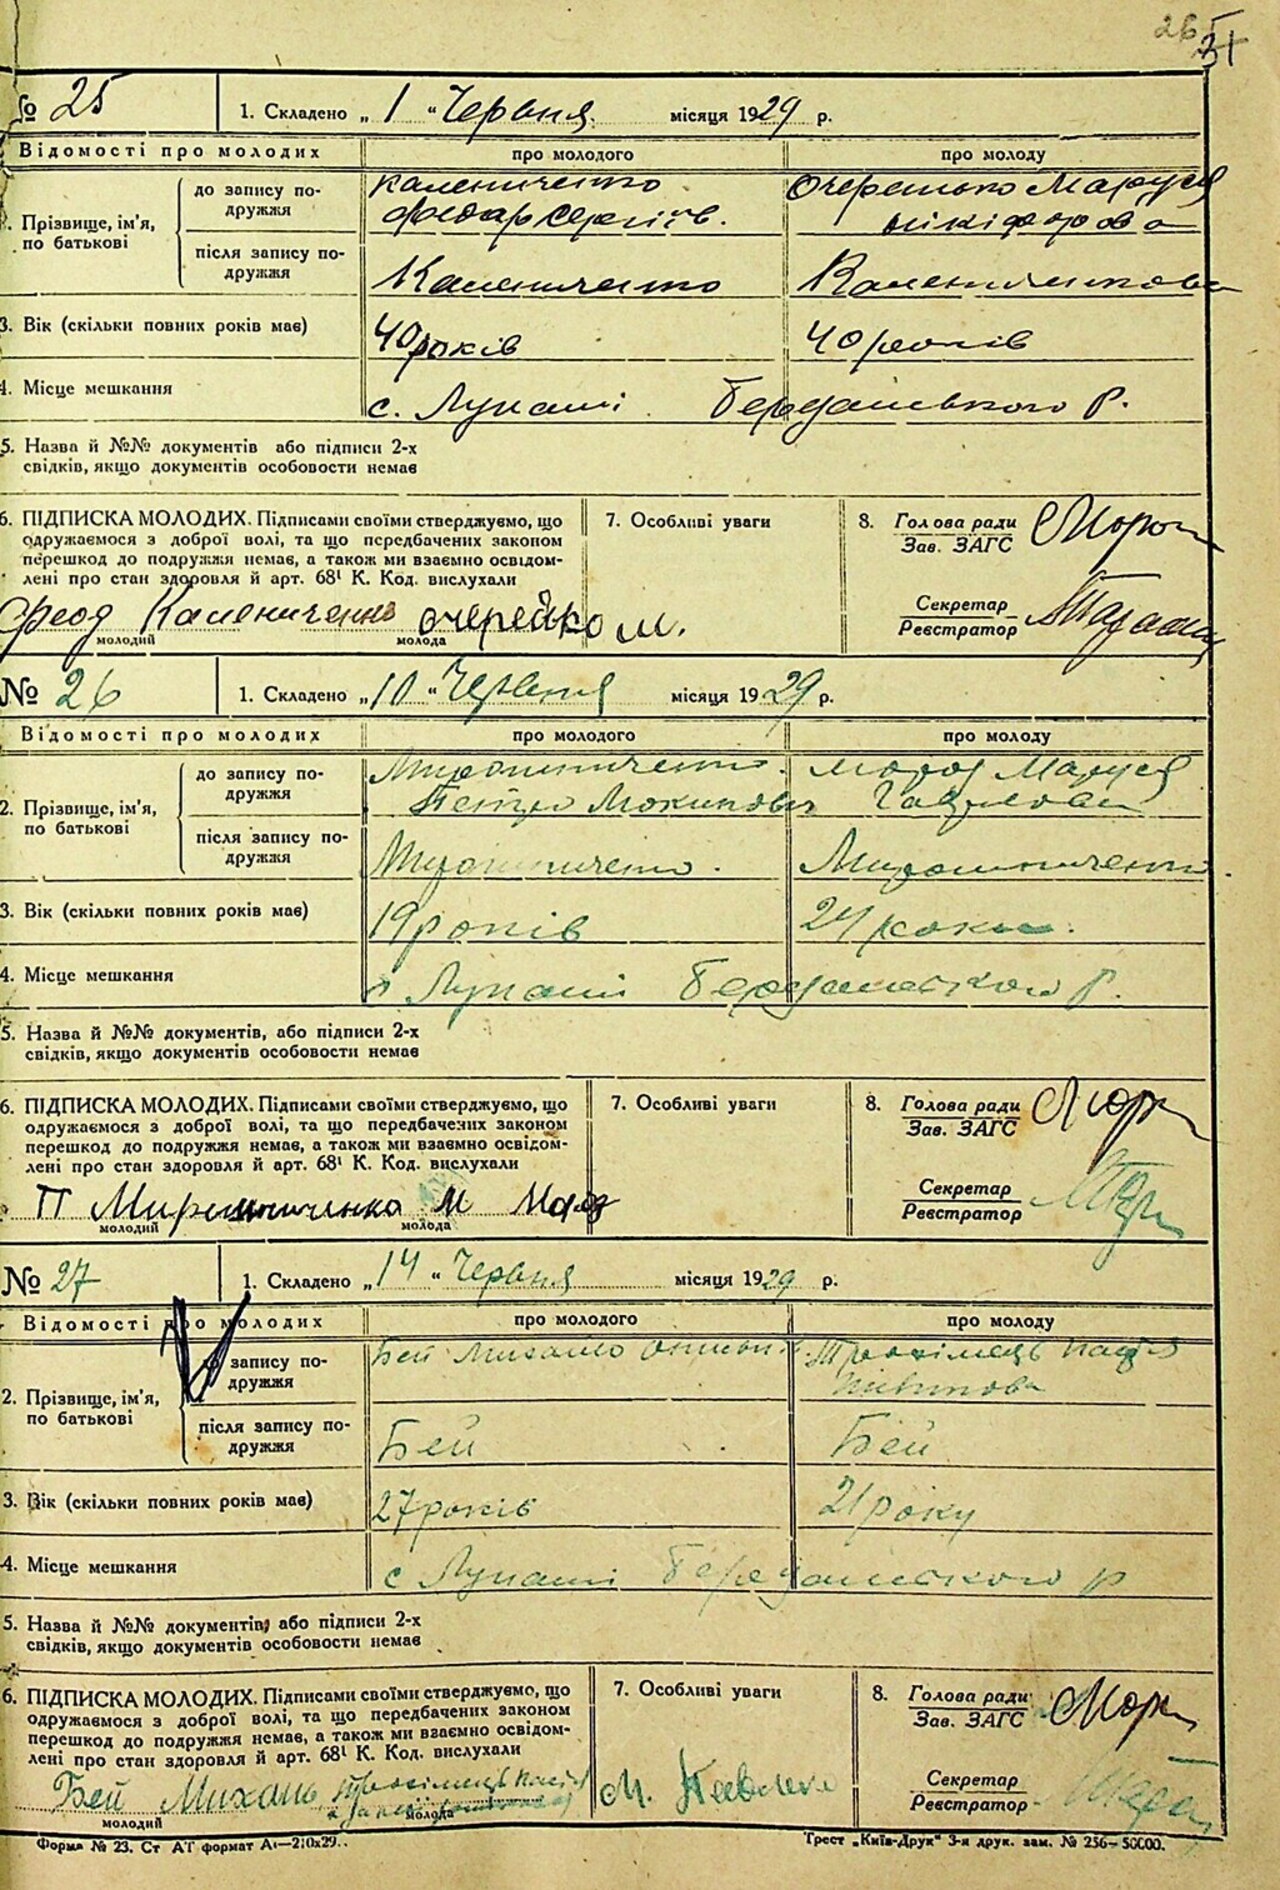 26
№ 25
1. Складено „ 1 “ Червня. місяця 1929 р.
Відомості про молодих
про молодого
про молоду
2. Прізвище, ім'я, по батькові
до запису по-
дружжя
Калениченко
Федор Сергіїв.
Очеретько Маруся
Нікіфорова
після запису по-
дружжя
Калениченко
3. Вік (скільки повних років має)
40 років
40 років
4. Місце мешкання
с. Лупаші Бердянського Р.
5. Назва й №№ документів або підписи 2-х
свідків, якщо документів особовости немає
6. ПІДПИСКА МОЛОДИХ. Підписами своїми стверджуємо, що
одружаємося з доброї волі, та що передбачених законом
перешкод до подружжя немає, а також ми взаємно освідом-
лені про стан здоровля й арт. 68¹ К. Код. вислухали
7. Особливі уваги
8. Голова ради
Зав. ЗАГС
Секретар
Реєстратор
Феод Калениченко Очерейко М.
молодий
молода
№ 26
1. Складено „ 10 “ Червня місяця 1929 р.
Відомості про молодих
про молодого
про молоду
2. Прізвище, ім'я,
по батькові
до запису по-
дружжя
Мирошниченко
Петро Мокипович
Мороз Маруся
Гаврилова
після запису по-
дружжя
Мирошниченко.
Мирошниченко.
3. Вік (скільки повних років має)
19 років
24 роки.
4. Місце мешкання
с Лупаші Бердянського Р.
5. Назва й №№ документів, або підписи 2-х
свідків, якщо документів особовости немає
6. ПІДПИСКА МОЛОДИХ. Підписами своїми стверджуємо, що
одружаємося з доброї волі, та що передбачених законом
перешкод до подружжя немає, а також ми взаємно освідом-
лені про стан здоровля й арт. 68¹ К. Код. вислухали
7. Особливі уваги
8. Голова ради
Зав. ЗАГС
Секретар
Реєстратор
П Мирошниченко М Мороз
молодий
молода
№ 27
1. Складено „ 14 “ Червня місяця 1929 р.
Відомості про молодих
про молодого
про молоду
2. Прізвище, ім'я,
по батькові
до запису по-
дружжя
Бей Михайло
Трохімець Настя
після запису по-
дружжя
Бей
Бей
3. Вік (скільки повних років має)
27 років
21 року
4. Місце мешкання
с Лупаші Бердянського р
5. Назва й №№ документів, або підписи 2-х
свідків, якщо документів особовости немає
6. ПІДПИСКА МОЛОДИХ. Підписами своїми стверджуємо, що
одружаємося з доброї волі, та що передбачених законом
перешкод до подружжя немає, а також ми взаємно освідом-
лені про стан здоровля й арт. 68¹ К. Код. вислухали
7. Особливі уваги
8. Голова ради
Зав. ЗАГС
Секретар
Реєстратор
Бей Михаль Трохімець
молодий
молода
Форма № 23. Ст АТ формат А₄—210х29..
Трест „Київ-Друк“ 3-я друк. зам. № 256–50000.